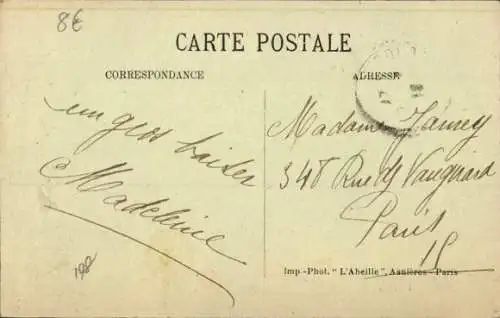 8€
CARTE POSTALE
CORRESPONDANCE
ADRESSE
un gros baiser
Madeleine
Madame
348 Rue de Vaugirard
Paris
15
198
Imp-Phot. "L'Abeille", Asnières-Paris